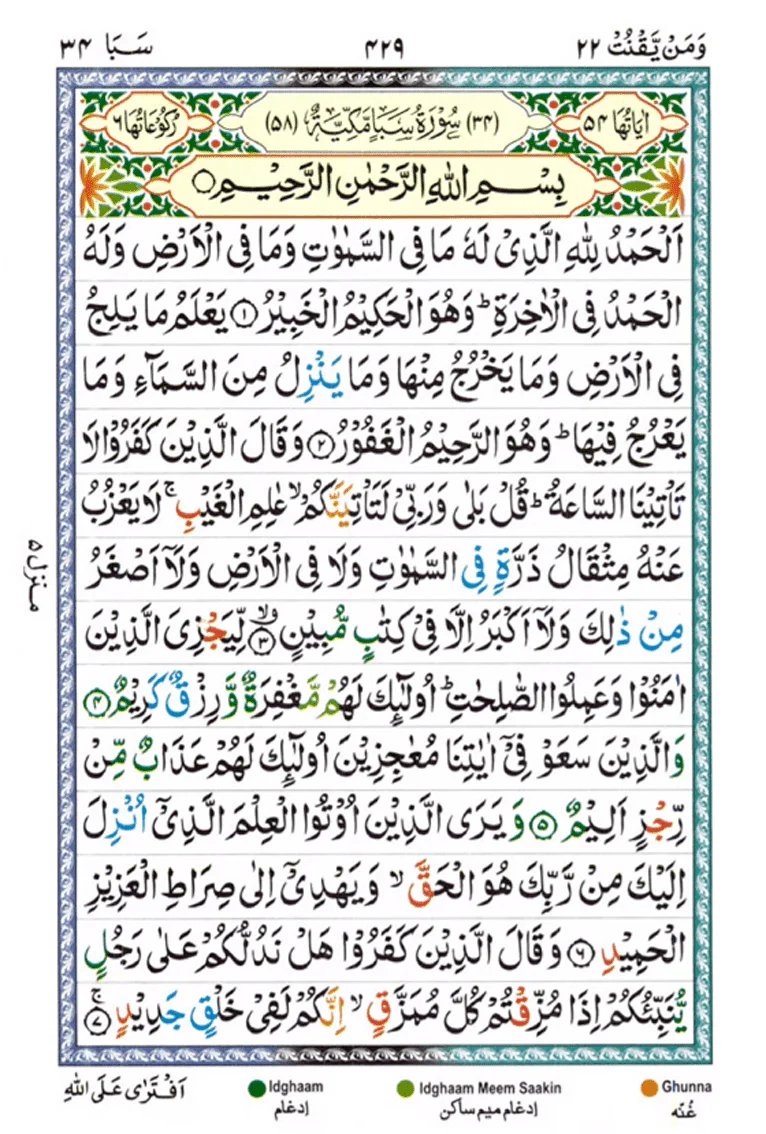 وَمَنْ يَّقْنُتْ ۲۲
۴۲۹
سَبَا ۳۴
اٰيَاتُهَا ۵۴
(۳۴) سُوْرَةُ سَبَاٍ مَّكِّيَّةٌ (۵۸)
رُكُوْعَاتُهَا ۶
بِسْمِ اللهِ الرَّحْمٰنِ الرَّحِيْمِ○
اَلْحَمْدُ لِلّٰهِ الَّذِىْ لَهٗ مَا فِى السَّمٰوٰتِ وَمَا فِى الْاَرْضِ وَلَهُ
الْحَمْدُ فِى الْاٰخِرَةِ ؕ وَهُوَ الْحَكِيْمُ الْخَبِيْرُ ۱ يَعْلَمُ مَا يَلِجُ
فِى الْاَرْضِ وَمَا يَخْرُجُ مِنْهَا وَمَا يَنْزِلُ مِنَ السَّمَآءِ وَمَا
يَعْرُجُ فِيْهَا ؕ وَهُوَ الرَّحِيْمُ الْغَفُوْرُ ۲ وَقَالَ الَّذِيْنَ كَفَرُوْا لَا
تَاْتِيْنَا السَّاعَةُ ؕ قُلْ بَلٰى وَرَبِّىْ لَتَاْتِيَنَّكُمْ ۙ عٰلِمِ الْغَيْبِ ۚ لَا يَعْزُبُ
عَنْهُ مِثْقَالُ ذَرَّةٍ فِى السَّمٰوٰتِ وَلَا فِى الْاَرْضِ وَلَاۤ اَصْغَرُ
مِنْ ذٰلِكَ وَلَاۤ اَكْبَرُ اِلَّا فِىْ كِتٰبٍ مُّبِيْنٍ ۙ ۳ لِّيَجْزِىَ الَّذِيْنَ
اٰمَنُوْا وَعَمِلُوا الصّٰلِحٰتِ ؕ اُولٰٓئِكَ لَهُمْ مَّغْفِرَةٌ وَّرِزْقٌ كَرِيْمٌ ۴
وَالَّذِيْنَ سَعَوْ فِىْۤ اٰيٰتِنَا مُعٰجِزِيْنَ اُولٰٓئِكَ لَهُمْ عَذَابٌ مِّنْ
رِّجْزٍ اَلِيْمٌ ۵ وَيَرَى الَّذِيْنَ اُوْتُوا الْعِلْمَ الَّذِىْۤ اُنْزِلَ
اِلَيْكَ مِنْ رَّبِّكَ هُوَ الْحَقَّ ۙ وَيَهْدِىْۤ اِلٰى صِرَاطِ الْعَزِيْزِ
الْحَمِيْدِ ۶ وَقَالَ الَّذِيْنَ كَفَرُوْا هَلْ نَدُلُّكُمْ عَلٰى رَجُلٍ
يُّنَبِّئُكُمْ اِذَا مُزِّقْتُمْ كُلَّ مُمَزَّقٍ ۙ اِنَّكُمْ لَفِىْ خَلْقٍ جَدِيْدٍ ۚ ۷
منزل ۵
اَفْتَرٰى عَلَى اللهِ
Idghaam
ادغام
Idghaam Meem Saakin
ادغام میم ساکن
Ghunna
غُنّه